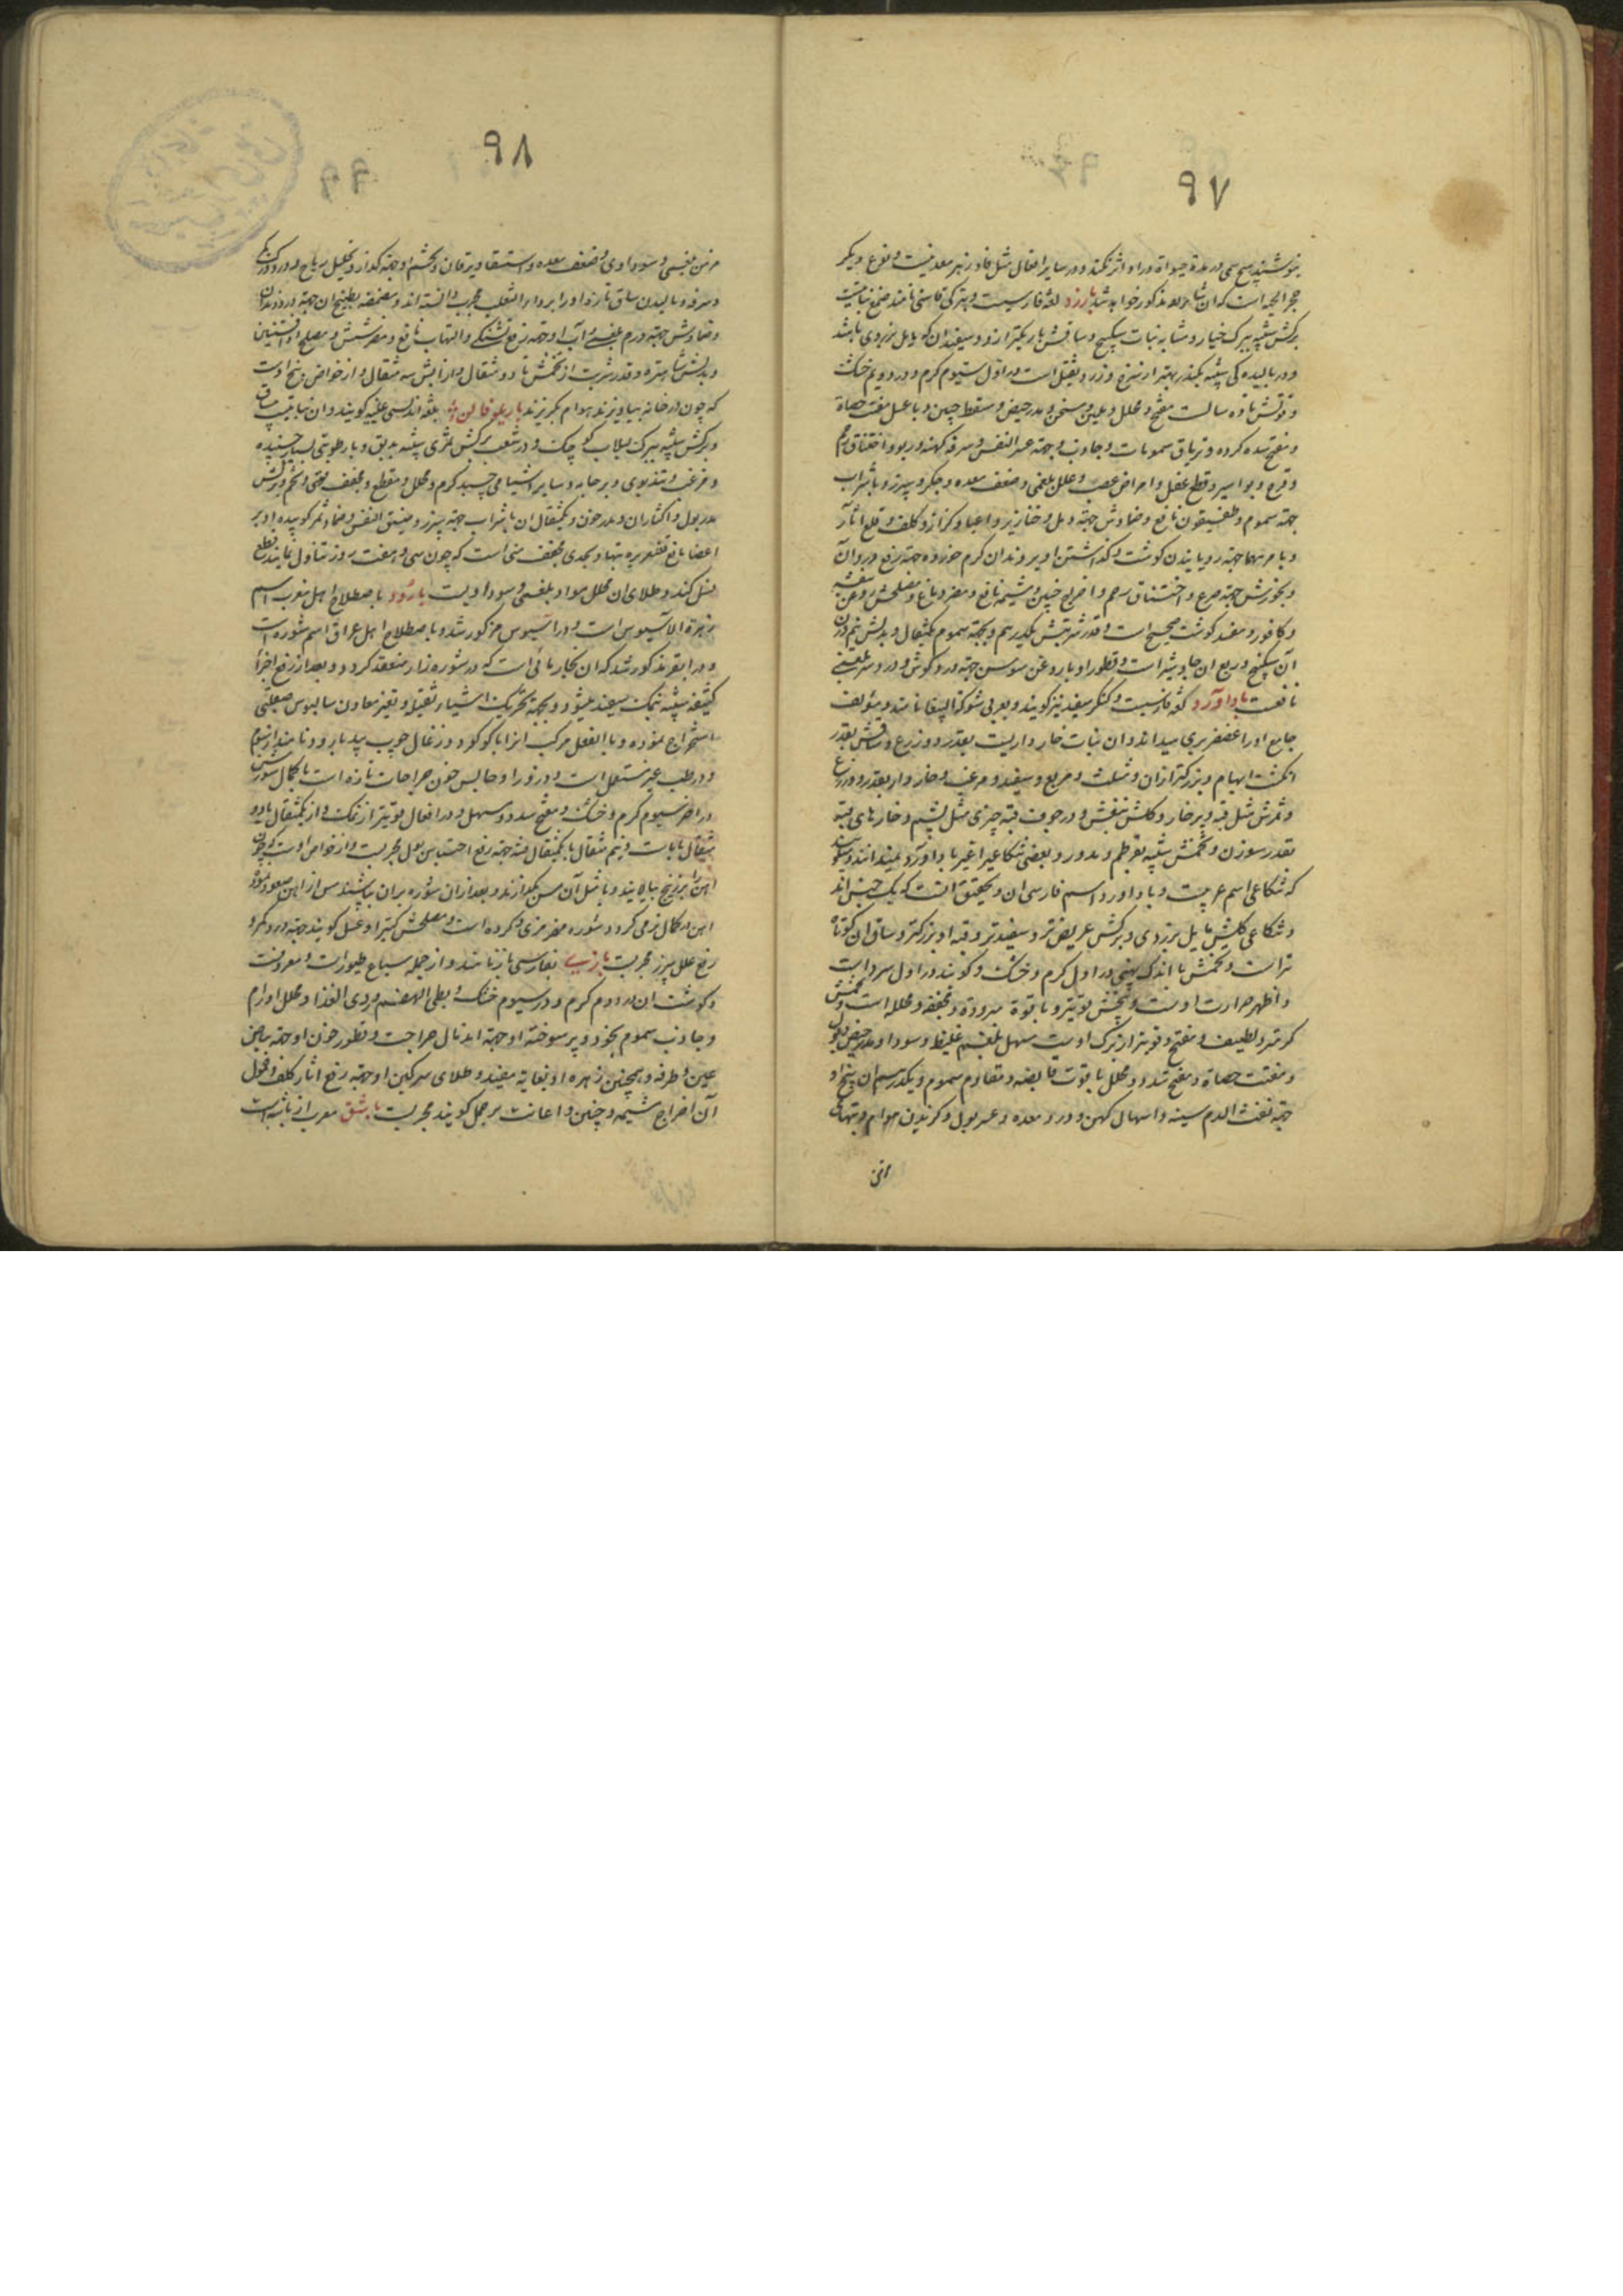 ۹۷
بنوشند هیچ سمی در مدة حیواة در او اثر نکند و در سایر افعال مثل فاد زهر معدنیست و نوع دیگر
حجر الحیه است که ان شاء الله مذکور خواهد شد بارزد لغة فارسیست و بترکی قاسنی نامند صمغ نباتیست
برکش شبیه ببرک خیار و مشابه نبات سکبینج و ساقش باریکتر از و و سفید ان که مایل بزردی باشد
و در بالیده کی شبیه بکندر بهتر از سبز و زرد ثقیل است در اول سیوم کرم و در دویم خشک
و قوتش تا ده سالست مفتح و محلل و ملین و مسخن و مدر حیض و مسقط جنین و با عسل مفتت حصاة
و مفتح سده کرده و تریاق سمومات و جاذب و جهة عسر النفس و سرفه کهنه و ربو و اختناق رحم
و قرع و بواسیر و قطع عفل و امراض عصب و علل بلغمی و ضعف معده و جکر و سپرز و با شراب
جهة سموم و طفسیقون نافع و ضمادش جهة دمل و خنازیر و اعیا و کزاز و کلف و قلع اثار
و با مرهمها جهة رویانیدن کوشت و کذاشتن او بر دندان کرم خورده جهة رفع درد آن
و بخورش جهة صرع و اختناق رحم و اخراج جنین و مشیمه نافع و مضر دماغ و مصلحش روغن بنفشه
و کافور و مفسد کوشت صحیح است و قدر شربتش یکدرهم و بجهة سموم یکمثقال و بدلش نیم وزن
آن سکبینج و ربع ان جاوشیر است و قطور او با روغن سوسن جهة درد کوش و درد سر بلغمی
نافعست باداورد لغة فارسیست و کنکر سفید نیز کویند و بعربی شوکة البیضا نامند و مؤلف
جامع او را عصفر بری میداند و ان نبات خار داریست بقدر دو زرع و ساقش بقدر
انکشت ابهام و بزرکتر از ان و مثلث و مربع و سفید و مرغب و خار دار بقدر دو زرع
و ثمرش مثل قبه و پر خار و کلش بنفش و در جوف قبه چیزی مثل پشم و خارهای قبه
بقدر سوزن و تخمش شبیه بقرطم و مدور و بعضی شکاعی را غیر باداورد میدانند و سویدی
که شکاعی اسم عربیست و باداورد اسم فارسی ان و تحقیق انست که یک جنس اند
و شکاعی کلش مایل بزردی و برکش عریض تر و سفیدتر و قبه او بزرکتر و ساق ان کوتاه
تر است و تخمش با اندک پهنی در اول کرم و خشک و کویند در اول سرد است
و اظهر حرارت اوست و بیخش قویتر و با قوة مبرده و مجففه و محلله است و تخمش
کرمتر و لطیف و مفتح و قویتر از برک اوست مسهل بلغم غلیظ و سودا و مدر حیض و بول
و مفتت حصاة و مفتح سدد و محلل با قوت قابضه و مقاوم سموم و یکدرهم ان بیخ او
جهة نفث الدم سینه و اسهال کهن و درد معده و عسر بول و کزیدن هوام و تبهای
۹۸
مزمن بلغمی و سوداوی و ضعف معده و استسقا و یرقان و تخم او جهة کزاز و تحلیل ریاح و درد ورکها
و سرفه و مالیدن ساق تازه او را بر داء الثعلب مجرب دانسته اند و مضمضه بطبیخ ان جهة درد دندان
و ضمادش جهة ورم بلغمی و آب او جهة رفع تشنکی و التهاب نافع و مضر شش و مصلح او افسنتین
و بدلش شاهتره و قدر شربت از تخمش تا دو مثقال و از آبش سه مثقال و از خواص بیخ اوست
که چون در خانه بیاویزند هوام بکریزند باریلوفاین لغة اندلسی علییه کویند و ان نباتیست بیساق
و برکش شبیه ببرک لبلاب کوچک و در شعب برکش ثمری شبیه بدبق و با رطوبتی بسیار چسبنده
و مرغب و تند بوی و بر جامه و سایر اشیا می چسبد کرم و محلل و مقطع و مجفف قوی و تخم و برکش
مدر بول و اکثار ان مدر خون و یکمثقال ان با شراب جهة سپرز و ضیق النفس و ضماد ثمر کوبیده او بر
اعضا مانع قشعریره تبها و بحدی مجفف منی است که چون سی و هفت روز تناول نمایند قطع
نسل کند و طلای ان محلل مواد بلغمی و سوداویست بارود باصطلاح اهل مغرب اسم
زهرة الاسیوس است و در اسیوس مذکور شد و باصطلاح اهل عراق اسم شوره است
و در ابقر مذکور شد که ان بخار مائی است که در شوره زار منعقد کردد و بعد از رفع اجزاء
کثیفه شبیه بنمک سفید میشود و بجهة تحریک اشیاء ثقیله و بغیر معادن سالیوس صقلی
استخراج نموده و بالفعل مرکب انرا با کوکرد و زغال چوب بید بارود نامند از سموم
و در طب غیر مستعمل است و ذرور او حابس خون جراحات تازه است با کمال سوزش
در اخر سیوم کرم و خشک و مفتح سدد و مسهل و در افعال قویتر از نمک و از یکمثقال تا دو
مثقال با نبات و نیم مثقال تا یکمثقال فتیله جهة رفع احتباس بول مجربست و از خواص اوست که چون
آهن را بزرنیخ بیالایند و با مثل آن مس بکدازند و بعد از ان شوره بر ان بپاشند مس از آهن صعود نموده
آهن در کمال نرمی کردد و شوره مضر مزی و کرده است و مصلحش کتیرا و عسل کویند جهة درد کمر و
رفع علل سپرز مجربست بازی بفارسی باز نامند و از جمله سباع طیور است و معروفست
و کوشت ان در دوم کرم و در سیوم خشک و بطی الهضم و ردی الغذا و محلل اورام
و جاذب سموم بخود و پر سوخته او جهة اندمال جراحت و قطور خون او جهة بیاض
عین و طرفه و همچنین زهره او بغایة مفید و طلای سرکین او جهة رفع اثار کلف و حمول
آن اخراج مشیمه و جنین و اعانت بر حمل کویند مجربست باشق معرب از باشه است